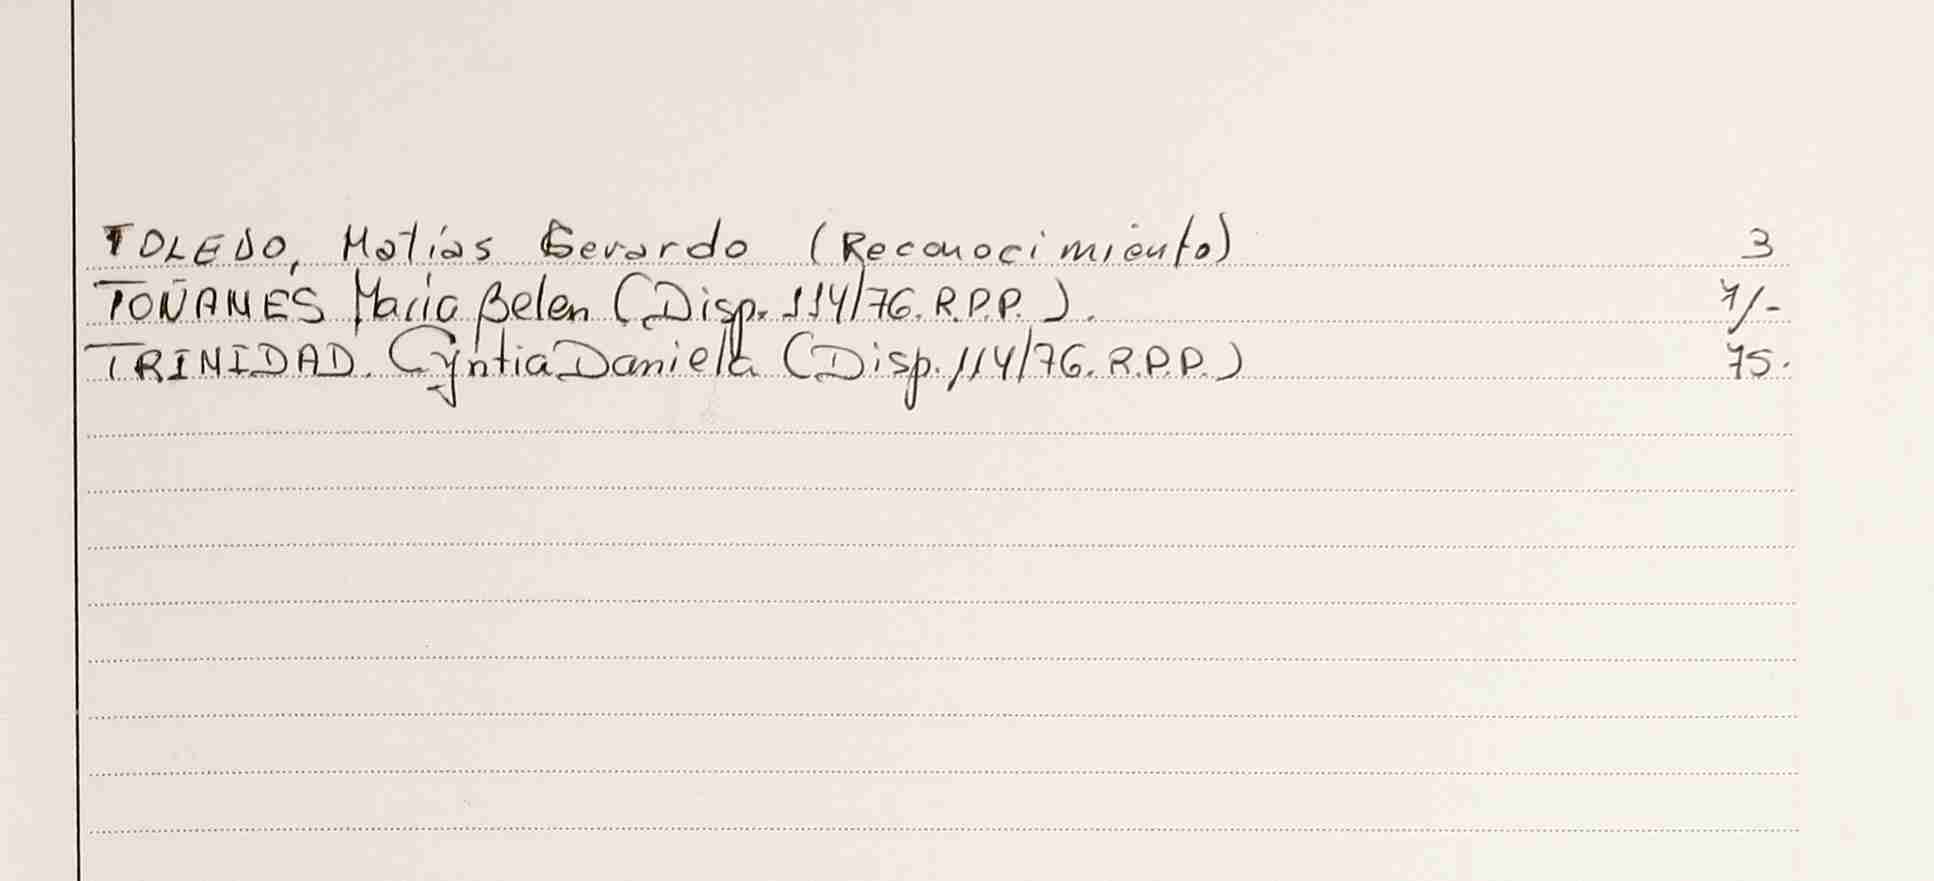 TOLEDO, Matías Gerardo (Reconocimiento) 3
TOÑANES María Belen (Disp. 114/76. R.P.P.). 7/-
TRINIDAD. Cyntia Daniela (Disp. 114/76. R.P.P.) 75.